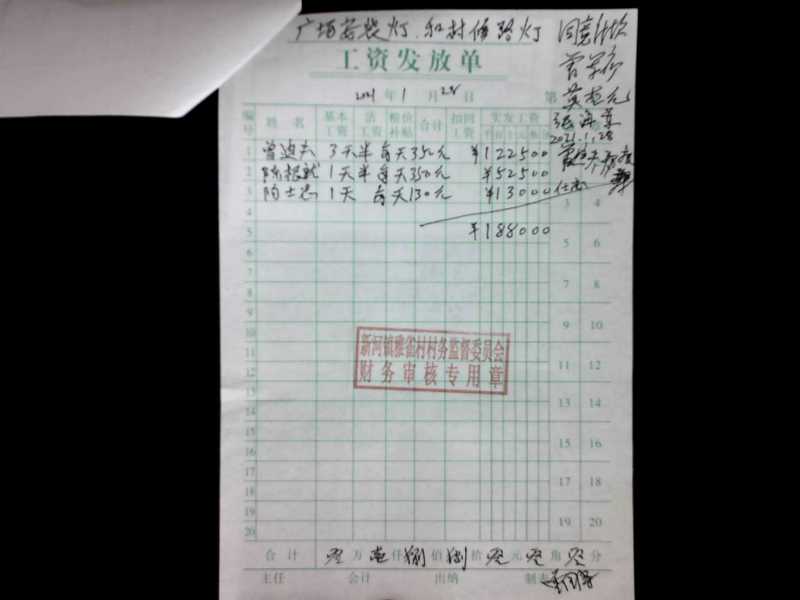 广场安装灯.和村修路灯 同意开支
工资发放单
2021年1月28日 第
编号 姓名 基本工资 活工资 粮价补贴 合计 扣回工资 实发工资
1 曾迪夫 3天半 每天350元 ¥122500
2 陈根斌 1天半 每天350元 ¥52500
3 陶士忠 1天 每天130元 ¥13000
张海
2021.1.28
4
5 ¥188000
6
7
8
9
10
11
12
13
14
15
16
17
18
19
20
3 4
5 6
7 8
9 10
11 12
13 14
15 16
17 18
19 20
新河镇雅雀村村务监督委员会
财务审核专用章
合计 零万壹仟捌佰捌拾零元零角零分
主任 会计 出纳 制表